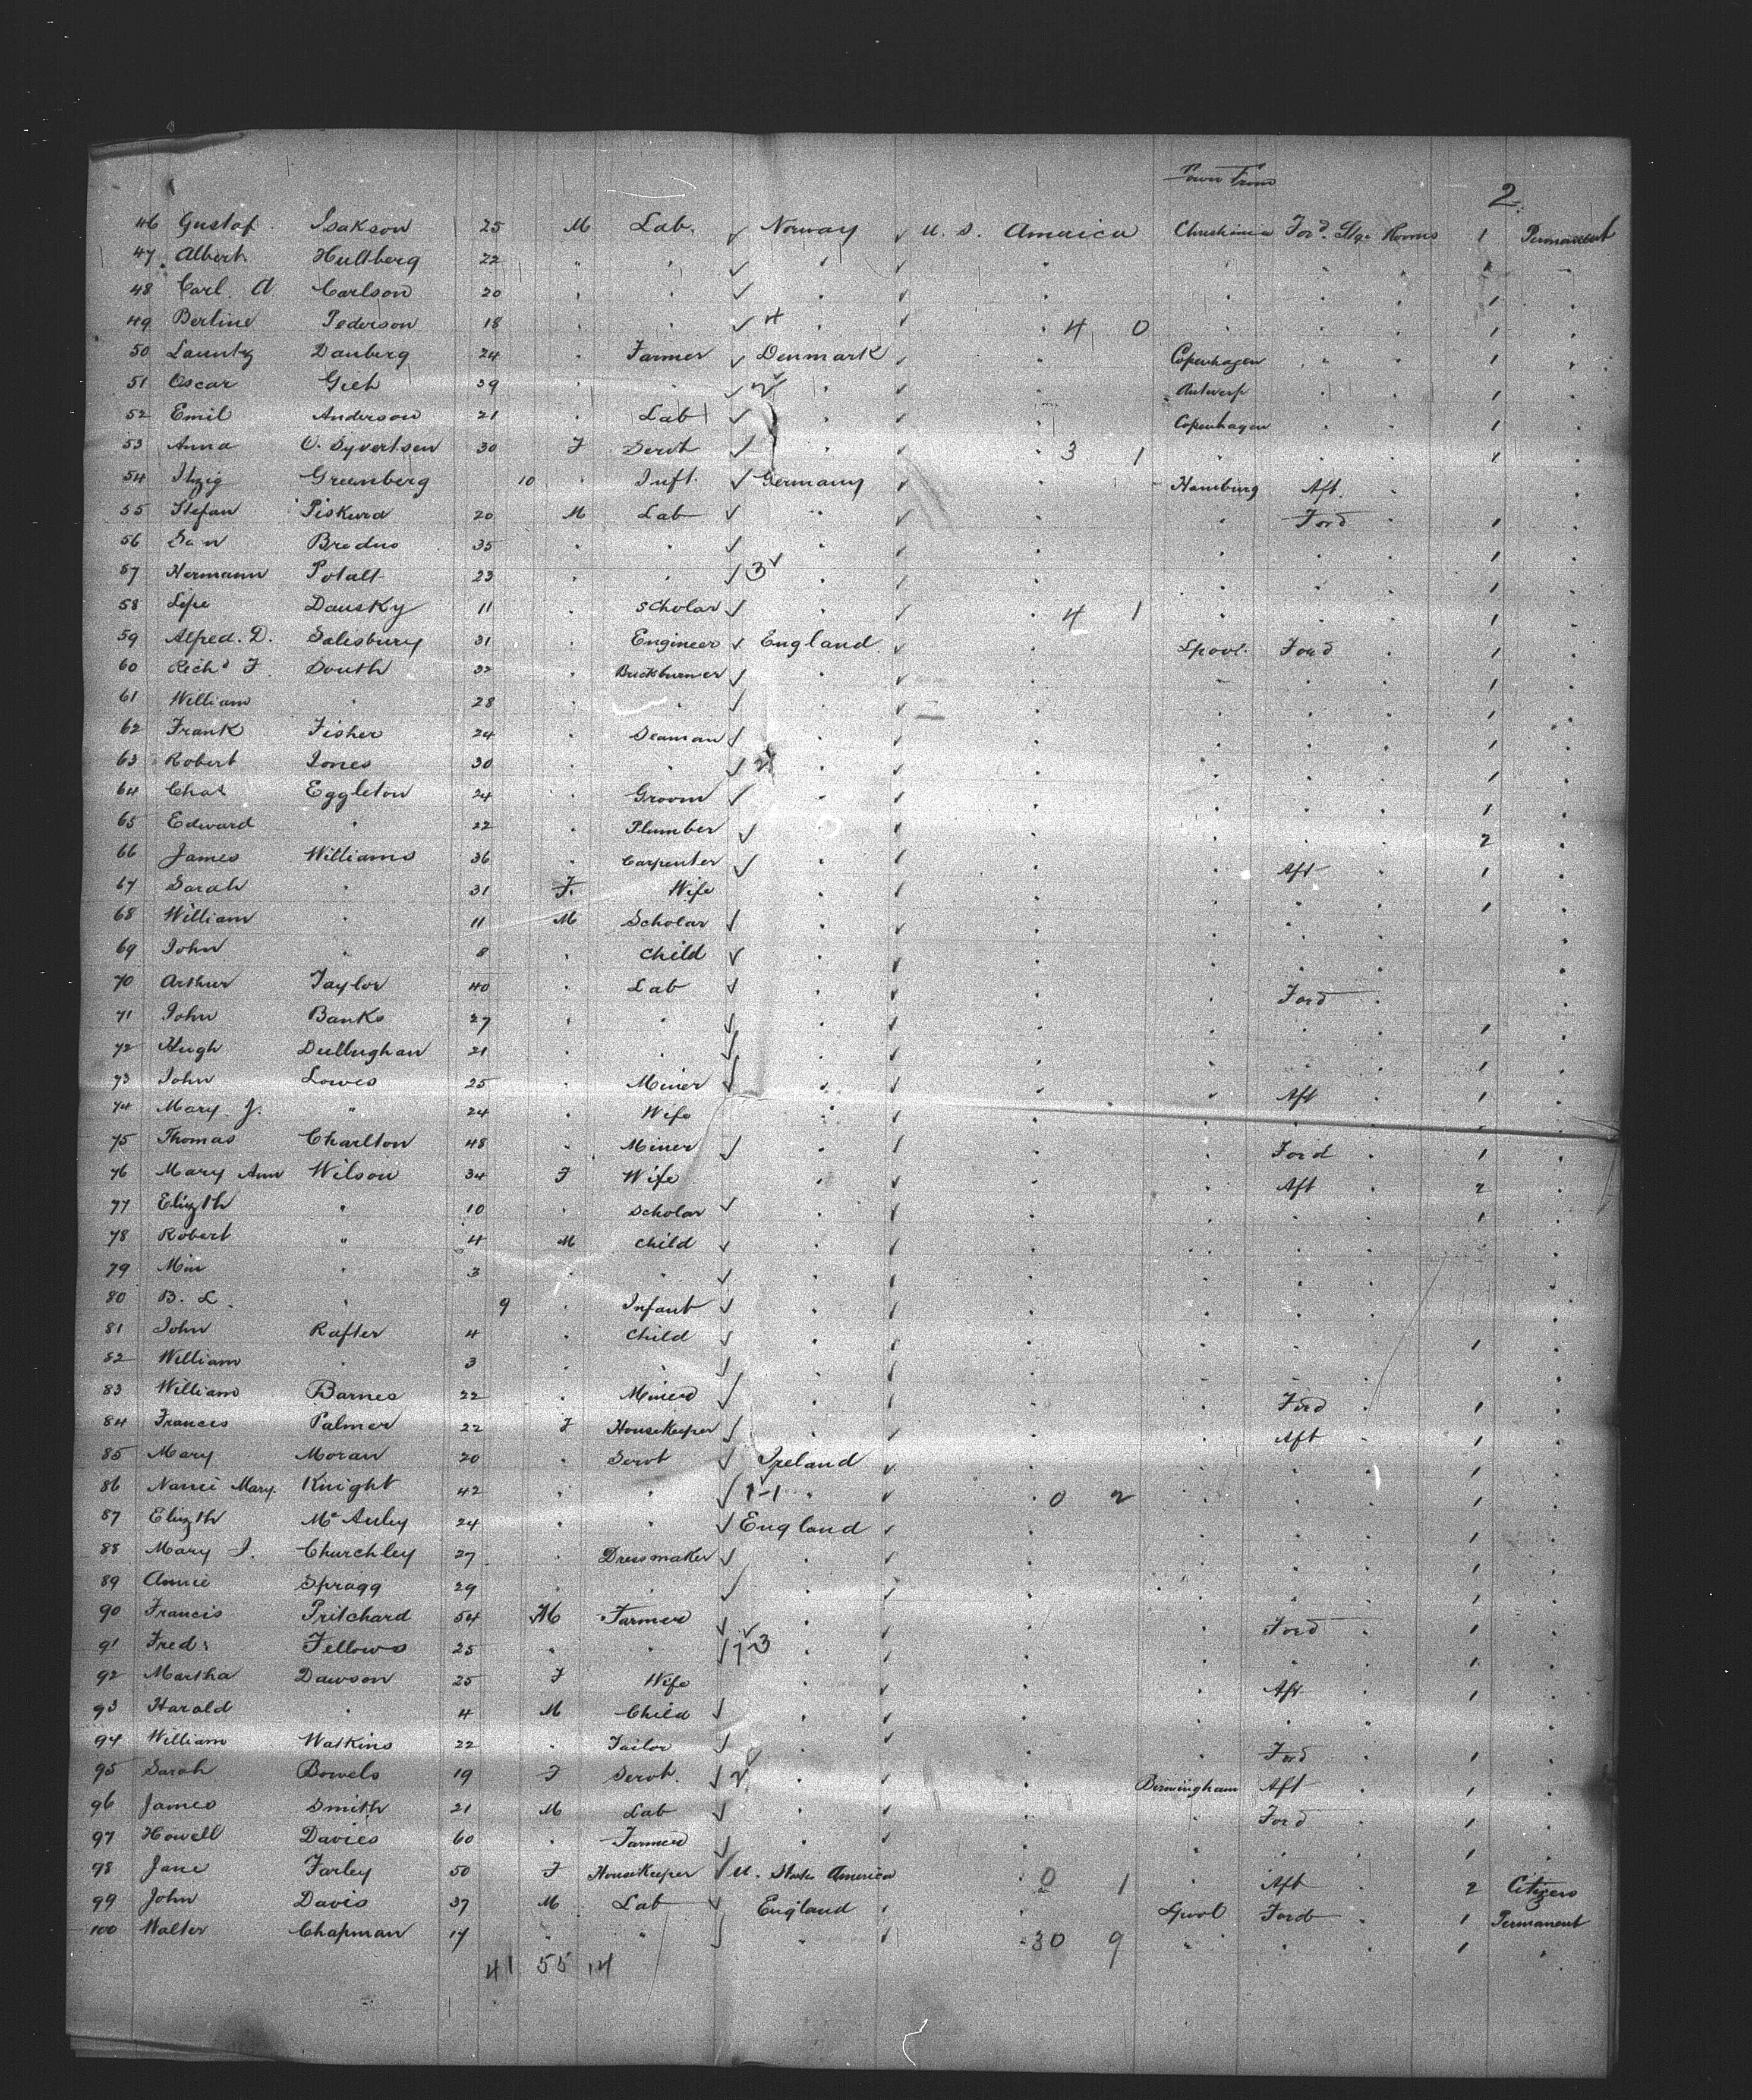 Town From
2.
46 Gustaf Isakson 25 M Lab. ✓ Norway ✓ U. S. Amaica Christiania Ford. Stge Rooms 1 Permanent
47 Albert Hultberg 22 " " ✓ " ✓ " " " " 1 "
48 Carl A Carlson 20 " " ✓ " ✓ " " " " 1 "
49 Berline Pederson 18 " " ✓ 4 " ✓ " 4 0 " " " 1 "
50 Launtz Danberg 24 " Farmer ✓ Denmark ✓ " Copenhagen " " 1 "
51 Oscar Gieh 39 " " ✓ 2 " ✓ " Antwerp " " 1 "
52 Emil Anderson 21 " Lab ✓ " ✓ " Copenhagen " " 1 "
53 Anna O. Syvertsen 30 F Servt ✓ " ✓ " 3 1 " " " 1 "
54 Itzig Greenberg 10 " Inft. ✓ Germany ✓ " Hamburg Aft. " "
55 Stefan Piskura 20 M Lab ✓ " ✓ " " Ford " 1 "
56 Bredus 35 " " ✓ " ✓ " " " " 1 "
57 Hermann Potalt 23 " " ✓ 3 " ✓ " " " " 1 "
58 Lipe Dansky 11 " Scholar ✓ " ✓ " 4 1 " " " 1 "
59 Alfred. D. Salisbury 31 " Engineer ✓ England ✓ " Lpool. Ford " 1 "
60 Richd F. South 32 " Brickburner ✓ " ✓ " " " " 1 "
61 William " 28 " " ✓ " ✓ " " " " 1 "
62 Frank Fisher 24 " Seaman ✓ " ✓ " " " " 1 "
63 Robert Jones 30 " " ✓ 2 " ✓ " " " " 1 "
64 Chas Eggleton 24 " Groom ✓ " ✓ " " " " 1 "
65 Edward " 22 " Plumber ✓ " ✓ " " " " 2 "
66 James Williams 36 " Carpenter ✓ " ✓ " " Aft " 1 "
67 Sarah " 31 F. Wife " ✓ " " " " 1 "
68 William " 11 M Scholar ✓ " ✓ " " " " "
69 John " 8 " Child ✓ " ✓ " " " " "
70 Arthur Taylor 40 " Lab ✓ " ✓ " " Ford " "
71 John Banks 27 " " ✓ " ✓ " " " " 1 "
72 Hugh Dullughan 21 " " ✓ " ✓ " " " " 1 "
73 John Lowes 25 " Miner ✓ " ✓ " " Aft " 1 "
74 Mary. J. " 24 " Wife " ✓ " " " " "
75 Thomas Charlton 48 " Miner ✓ " ✓ " " Ford " 1 "
76 Mary Ann Wilson 34 F Wife " ✓ " " Aft " 2 "
77 Elizth " 10 " Scholar ✓ " ✓ " " " " 1 "
78 Robert " 4 M Child ✓ " ✓ " " " " "
79 Min " 3 " " ✓ " ✓ " " " " "
80 B. L. " 9 " Infant ✓ " ✓ " " " " "
81 John Rafter 4 " Child ✓ " ✓ " " " " 1 "
82 William " 3 " " ✓ " ✓ " " " " "
83 William Barnes 22 " Miner ✓ " ✓ " " Ford " 1 "
84 Frances Palmer 22 F Housekeeper ✓ " ✓ " " Aft " 1 "
85 Mary Moran 20 " Servt ✓ Ireland ✓ " " " " 1 "
86 Nanie Mary. Knight 42 " " ✓ 1-1 " ✓ " 0 2 " " " 1 "
87 Elizth Mc Auley 24 " " ✓ England ✓ " " " " 1 "
88 Mary J. Churchley 27 " Dressmaker ✓ " ✓ " " " " 1 "
89 Annie Spragg 29 " " ✓ " ✓ " " " " 1 "
90 Francis Pritchard 54 M Farmer ✓ " ✓ " " Ford " 1 "
91 Fred: Fellows 25 " " ✓ 1-3 " ✓ " " " " 1 "
92 Martha Dawson 25 F Wife " ✓ " " Aft " 1 "
93 Harald " 4 M Child ✓ " ✓ " " " " "
94 William Watkins 22 " Tailor ✓ " ✓ " " Ford " 1 "
95 Sarah Bowels 19 F Servt. ✓ 2 " ✓ " Birmingham Aft " 1 "
96 James Smith 21 M Lab ✓ " ✓ " " Ford " 1 "
97 Howell Davies 60 " Farmer ✓ " ✓ " " " " 1 "
98 Jane Farley 50 F Housekeeper ✓ U. States America " 0 1 " Aft " 2 Citizens
99 John Davis 37 M Lab ✓ England ✓ " Lpool Ford " 1 Permanent
100 Walter Chapman 17 " " ✓ " ✓ " 30 9 " " " 1 "
41 55 14